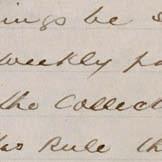 ings be
weekly pa
the Collect
Rule th